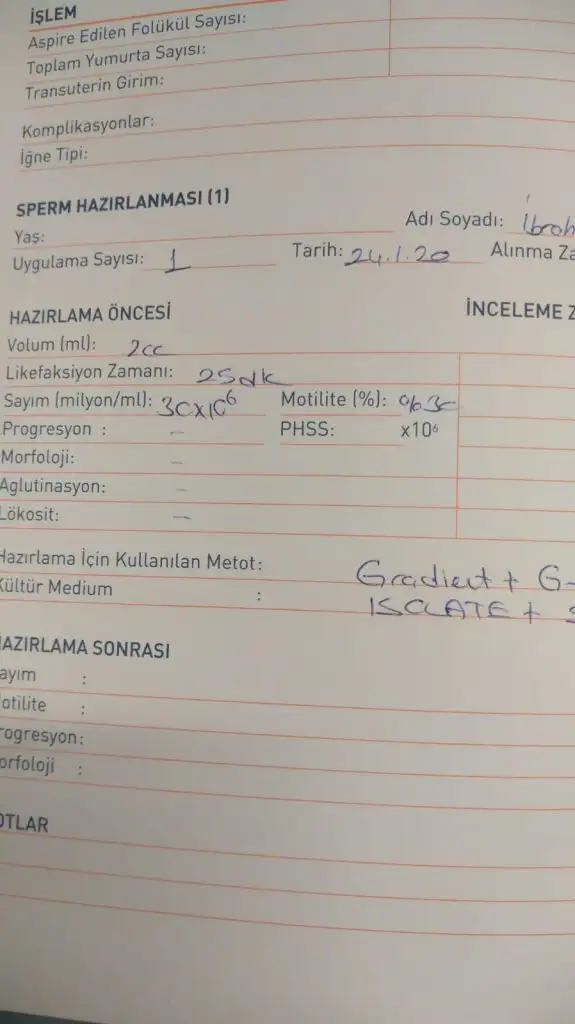 İŞLEM
Aspire Edilen Folükül Sayısı:
Toplam Yumurta Sayısı:
Transuterin Girim:
Komplikasyonlar:
İğne Tipi:
SPERM HAZIRLANMASI (1)
Adı Soyadı: İbrah
Yaş:
Uygulama Sayısı: 1 Tarih: 24.1.20 Alınma Za
HAZIRLAMA ÖNCESİ İNCELEME Z
Volum (ml): 2cc
Likefaksiyon Zamanı: 25dk
Sayım (milyon/ml): 30x10⁶ Motilite (%): %30
Progresyon : – PHSS: x10⁶
Morfoloji: –
Aglutinasyon: –
Lökosit: –
Hazırlama İçin Kullanılan Metot: Gradient + G-
Kültür Medium : ISOLATE + S
HAZIRLAMA SONRASI
ayım :
otilite :
rogresyon:
orfoloji :
OTLAR